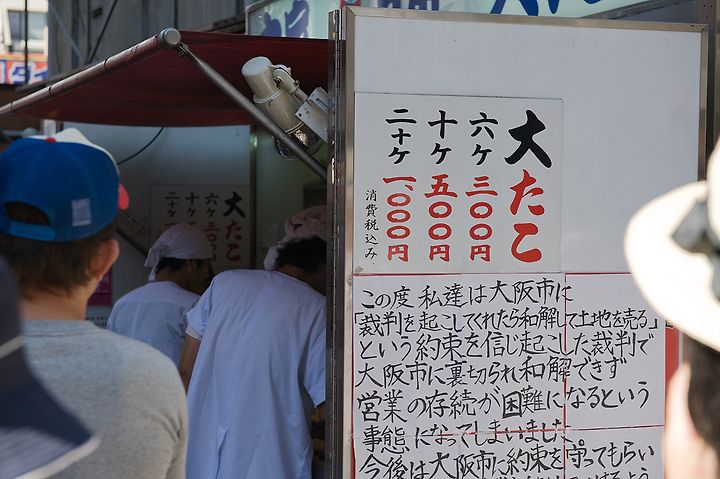 大たこ
六ケ 三〇〇円
十ケ 五〇〇円
二十ケ 一、〇〇〇円
消費税込み
この度 私達は大阪市に
「裁判を起こしてくれたら和解して土地を売る」
という約束を信じ起こした裁判で
大阪市に裏切られ和解できず
営業の存続が困難になるという
事態になってしまいました
今後は大阪市に約束を守ってもらい
大たこ
六ケ
十ケ
二十ケ